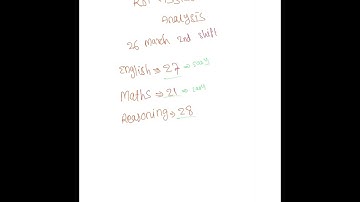 RBI
Analysis
26 march 2nd shift
English → 27 → easy
Maths → 21 →
Reasoning → 28